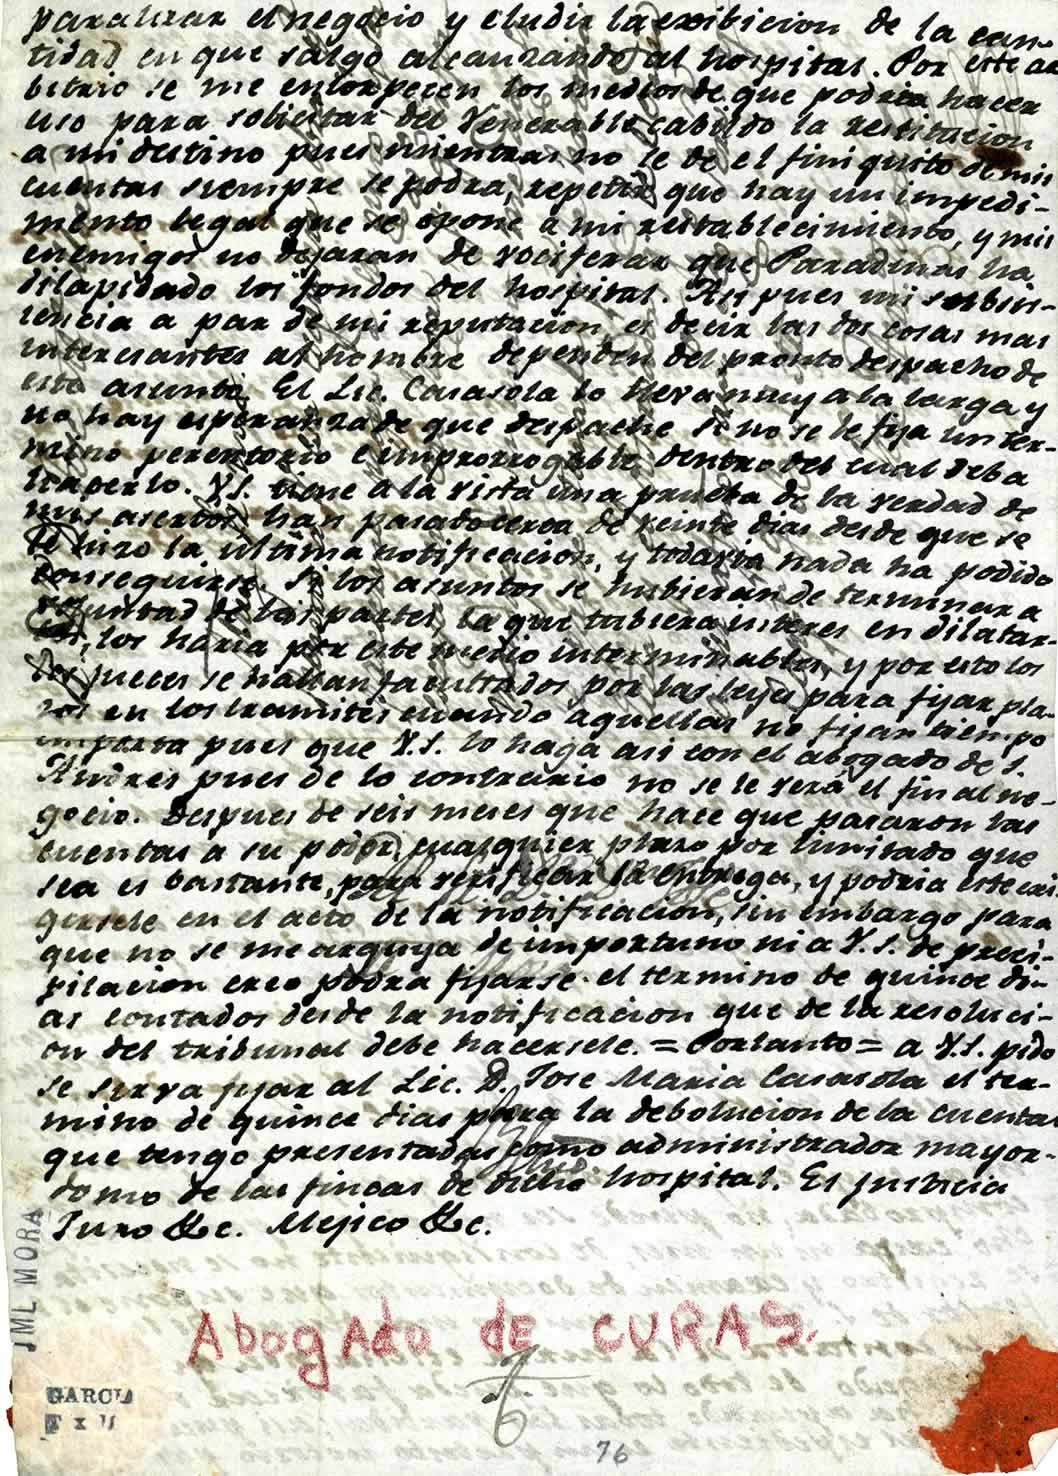 paralizar el negocio y eludir la exibicion de la can-
tidad en que salgo alcanzando al hospital. Por este ar
bitrio se me entorpecen los medios de que podria hacer
uso para solicitar del Venerable cabildo la restitucion
a mi destino pues mientras no se de el finiquito de mis
cuentas siempre se podra, repetir que hay un impedi-
mento legal que se opone á mi restablecimiento, y mis
enemigos no dejaran de vociferar que Paradinas ha
dilapidado los fondos del hospital. Asi pues mi subsis-
tencia a par de mi reputacion, es decir las dos cosas mas
interesantes al hombre dependen del pronto despacho de
este asunto. El Lic. Casasola lo lleva muy a la larga y
no hay esperanza de que despache si no se le fija un ter-
mino perentorio e improrrogable, dentro del cual deba
hacerlo. V.S. tiene a la vista una prueba de la verdad de
mis asertos: han pasado cerca de veinte dias desde que se
le hizo la ultima notificacion, y todavia nada ha podido
conseguirse. Si los asuntos se hubieran de terminar a
voluntad de las partes, la que tubiera interes en dilatar-
los, los haria por este medio interminables, y por esto los
los jueces se hallan facultados por las leyes para fijar pla-
zos en los tramites cuando aquellas no fijan tiempo
importa pues que V.S. lo haga asi con el abogado de S.
Andres pues de lo contrario no se le verá el fin al ne-
gocio. Despues de seis meses que hace que pasaron las
cuentas a su poder, cualquier plazo por limitado que
sea es bastante, para verificar la entrega, y podria este exi
girsele en el acto de la notificacion, sin embargo para
que no se me arguya de importuno ni a V.S. de preci-
pitacion creo podra fijarse el termino de quince di-
as contados desde la notificacion que de la resoluci-
on del tribunal debe hacersele. = Portanto = a V.S. pido
se sirva fijar al Lic. D. Jose Maria Casasola el ter-
mino de quince dias para la debolucion de la cuentas
que tengo presentadas como administrador mayor-
domo de las fincas de dicho hospital. Es justicia
Juro &c. Mejico &c.
JML MORA
Abogado de CURAS.
6
GARCIA
76